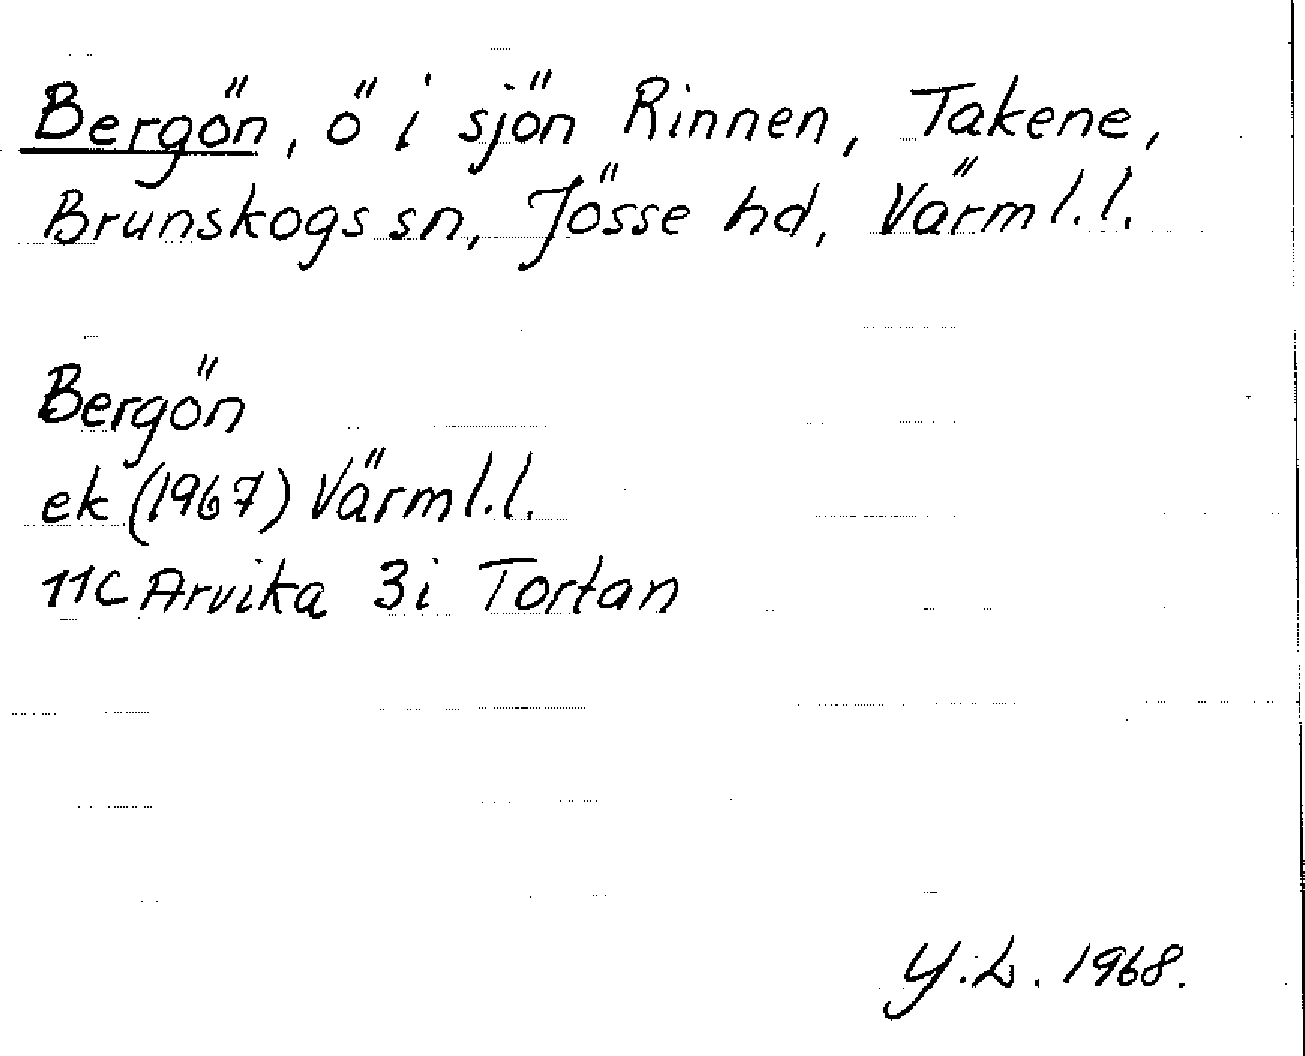 Bergön, ö i sjön Rinnen, Takene,
Brunskogs sn, Jösse hd, Värml.l.
Bergön
ek (1967) Värml.l.
11C Arvika 3i Tortan
Y.L. 1968.